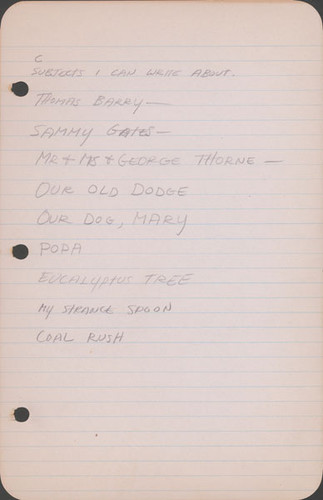 C
SUBJECTS I CAN WRITE ABOUT.
THOMAS BARRY —
SAMMY GATES —
MR + MS + GEORGE THORNE —
OUR OLD DODGE
OUR DOG, MARY
POPA
EUCALYPTUS TREE
MY STRANGE SPOON
COAL RUSH